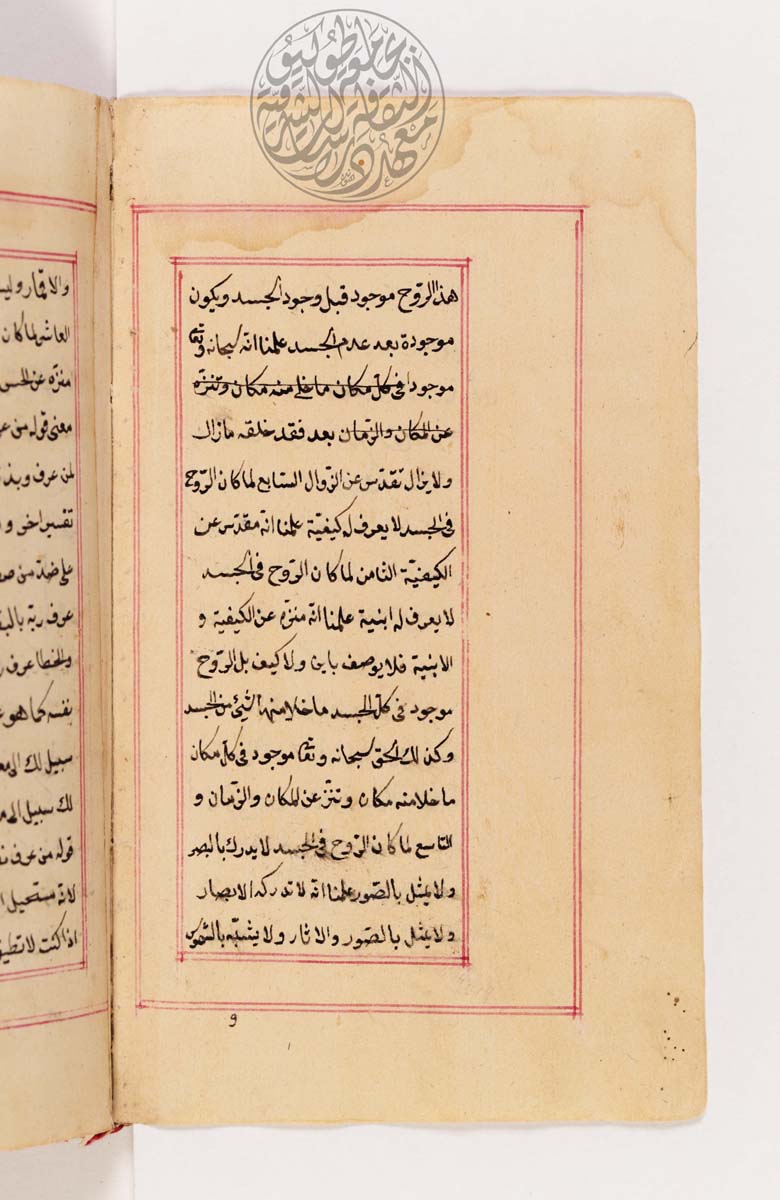 هذا الروح موجود قبل وجود الجسد ويكون
موجودة بعد عدم الجسد علمنا انّه سبحانه وتعا
موجودا في كلّ مكان ما خلي منه مكان وتنزّه
عن المكان والزمان بعد فقد خلقه مازال
ولا يزال تقدّس عن الزوال السابع لما كان الرّوح
في الجسد لا يعرف له كيفيّة علمنا انّه مقدّس عن
الكيفيّة الثامن لما كان الرّوح في الجسد
لا يعرف له ابنية علمنا انّه منزّه عن الكيفية و
الابنية فلا يوصف باين ولا كيف بل الرّوح
موجود في كلّ الجسد ما خلا منها شيئ من الجسد
وكذلك الحق سبحانه وتعا موجود في كلّ مكان
ما خلا منه مكان وتنزّ عن المكان والزّمان و
التاسع لما كان الرّوح في الجسد لا يدرك بالبصر
ولا يمثل بالصّور علمنا انّه لا تدركه الابصار
ولا يمثل بالصّور والاثار ولا يشبّه بالشموس
و
والاقمار وليس
العاشر لما كان
منزّه عن الحس
معنى قوله من عر
لمن عرف وبذ
تفسير اخر و
على ضدّ من صف
عرف ربّه بالبقا
والخطا عرف ر
نفسه كما هو ع
سبيل لك الى مع
لك سبيل الى م
قوله من عرف نف
لانّه مستحيل ا
اذا كنت لا تطيق
معهد دراسات الثقافة الشرقية
جامعة طوكيو